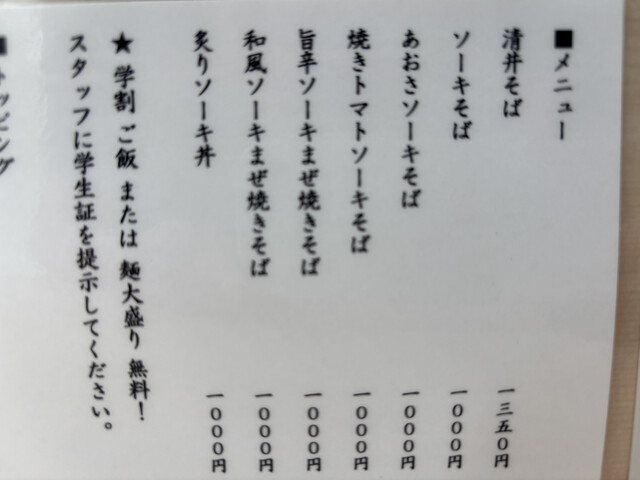 ■メニュー
清井そば 一三五〇円
ソーキそば 一〇〇〇円
あおさソーキそば 一〇〇〇円
焼きトマトソーキそば 一〇〇〇円
旨辛ソーキまぜ焼きそば 一〇〇〇円
和風ソーキまぜ焼きそば 一〇〇〇円
炙りソーキ丼 一〇〇〇円
★ 学割 ご飯 または 麺大盛り 無料！
スタッフに学生証を提示してください。
■トッピング